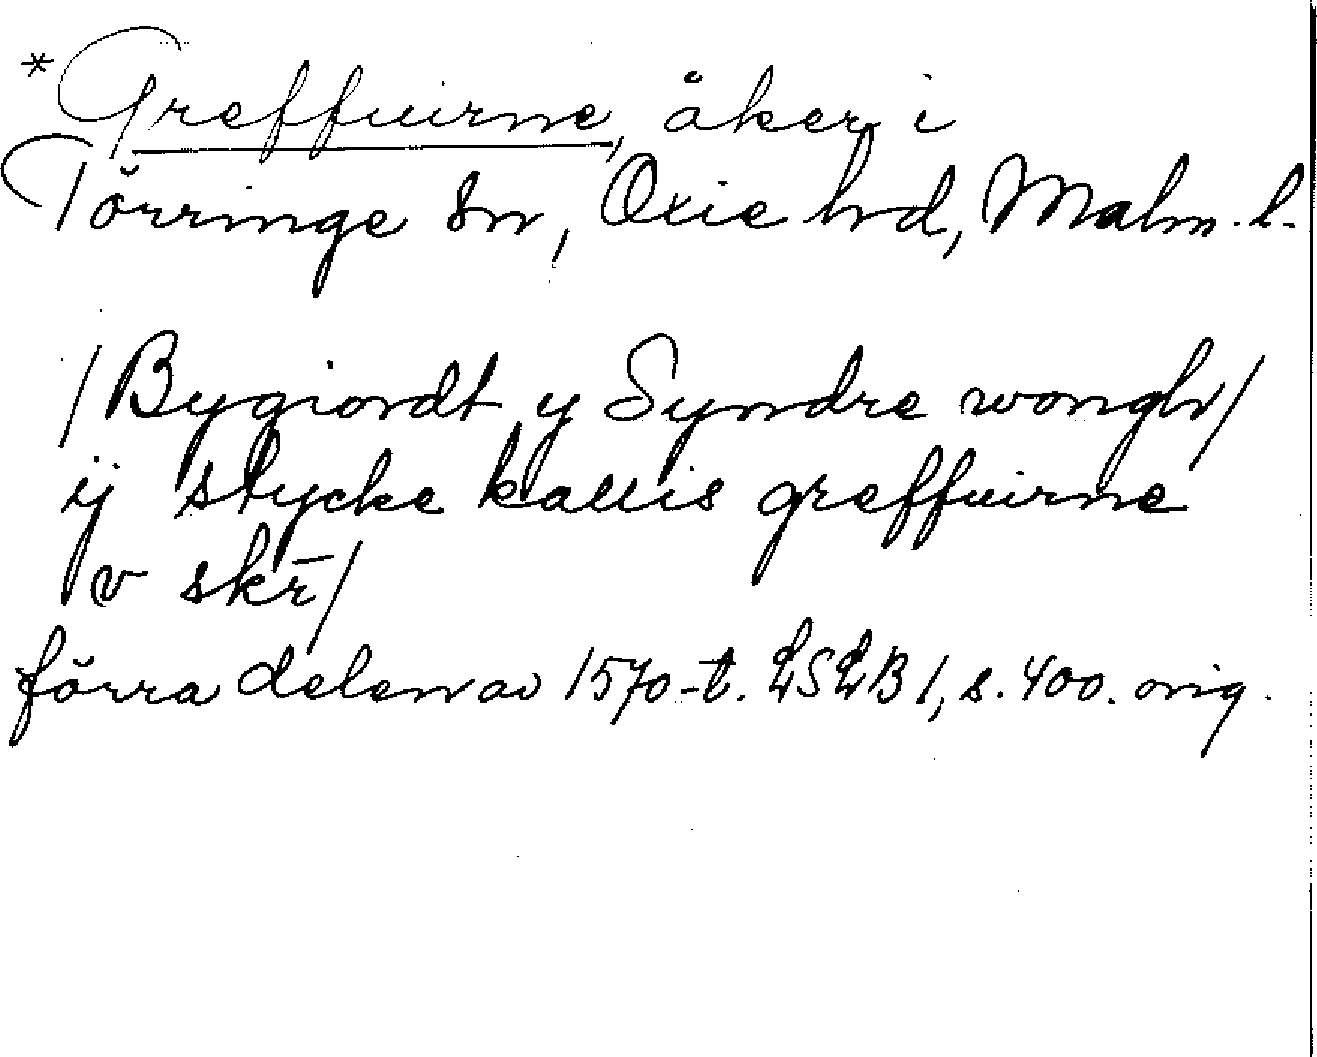 *Greffuirne, åker i
Törringe sn, Oxie hd, Malm. l.
/Bygiordt y Syndre wongh/
ij stycke kallis greffuirne
v skr̄/
förra delen av 1570-t. LSLB 1, s. 400. orig.